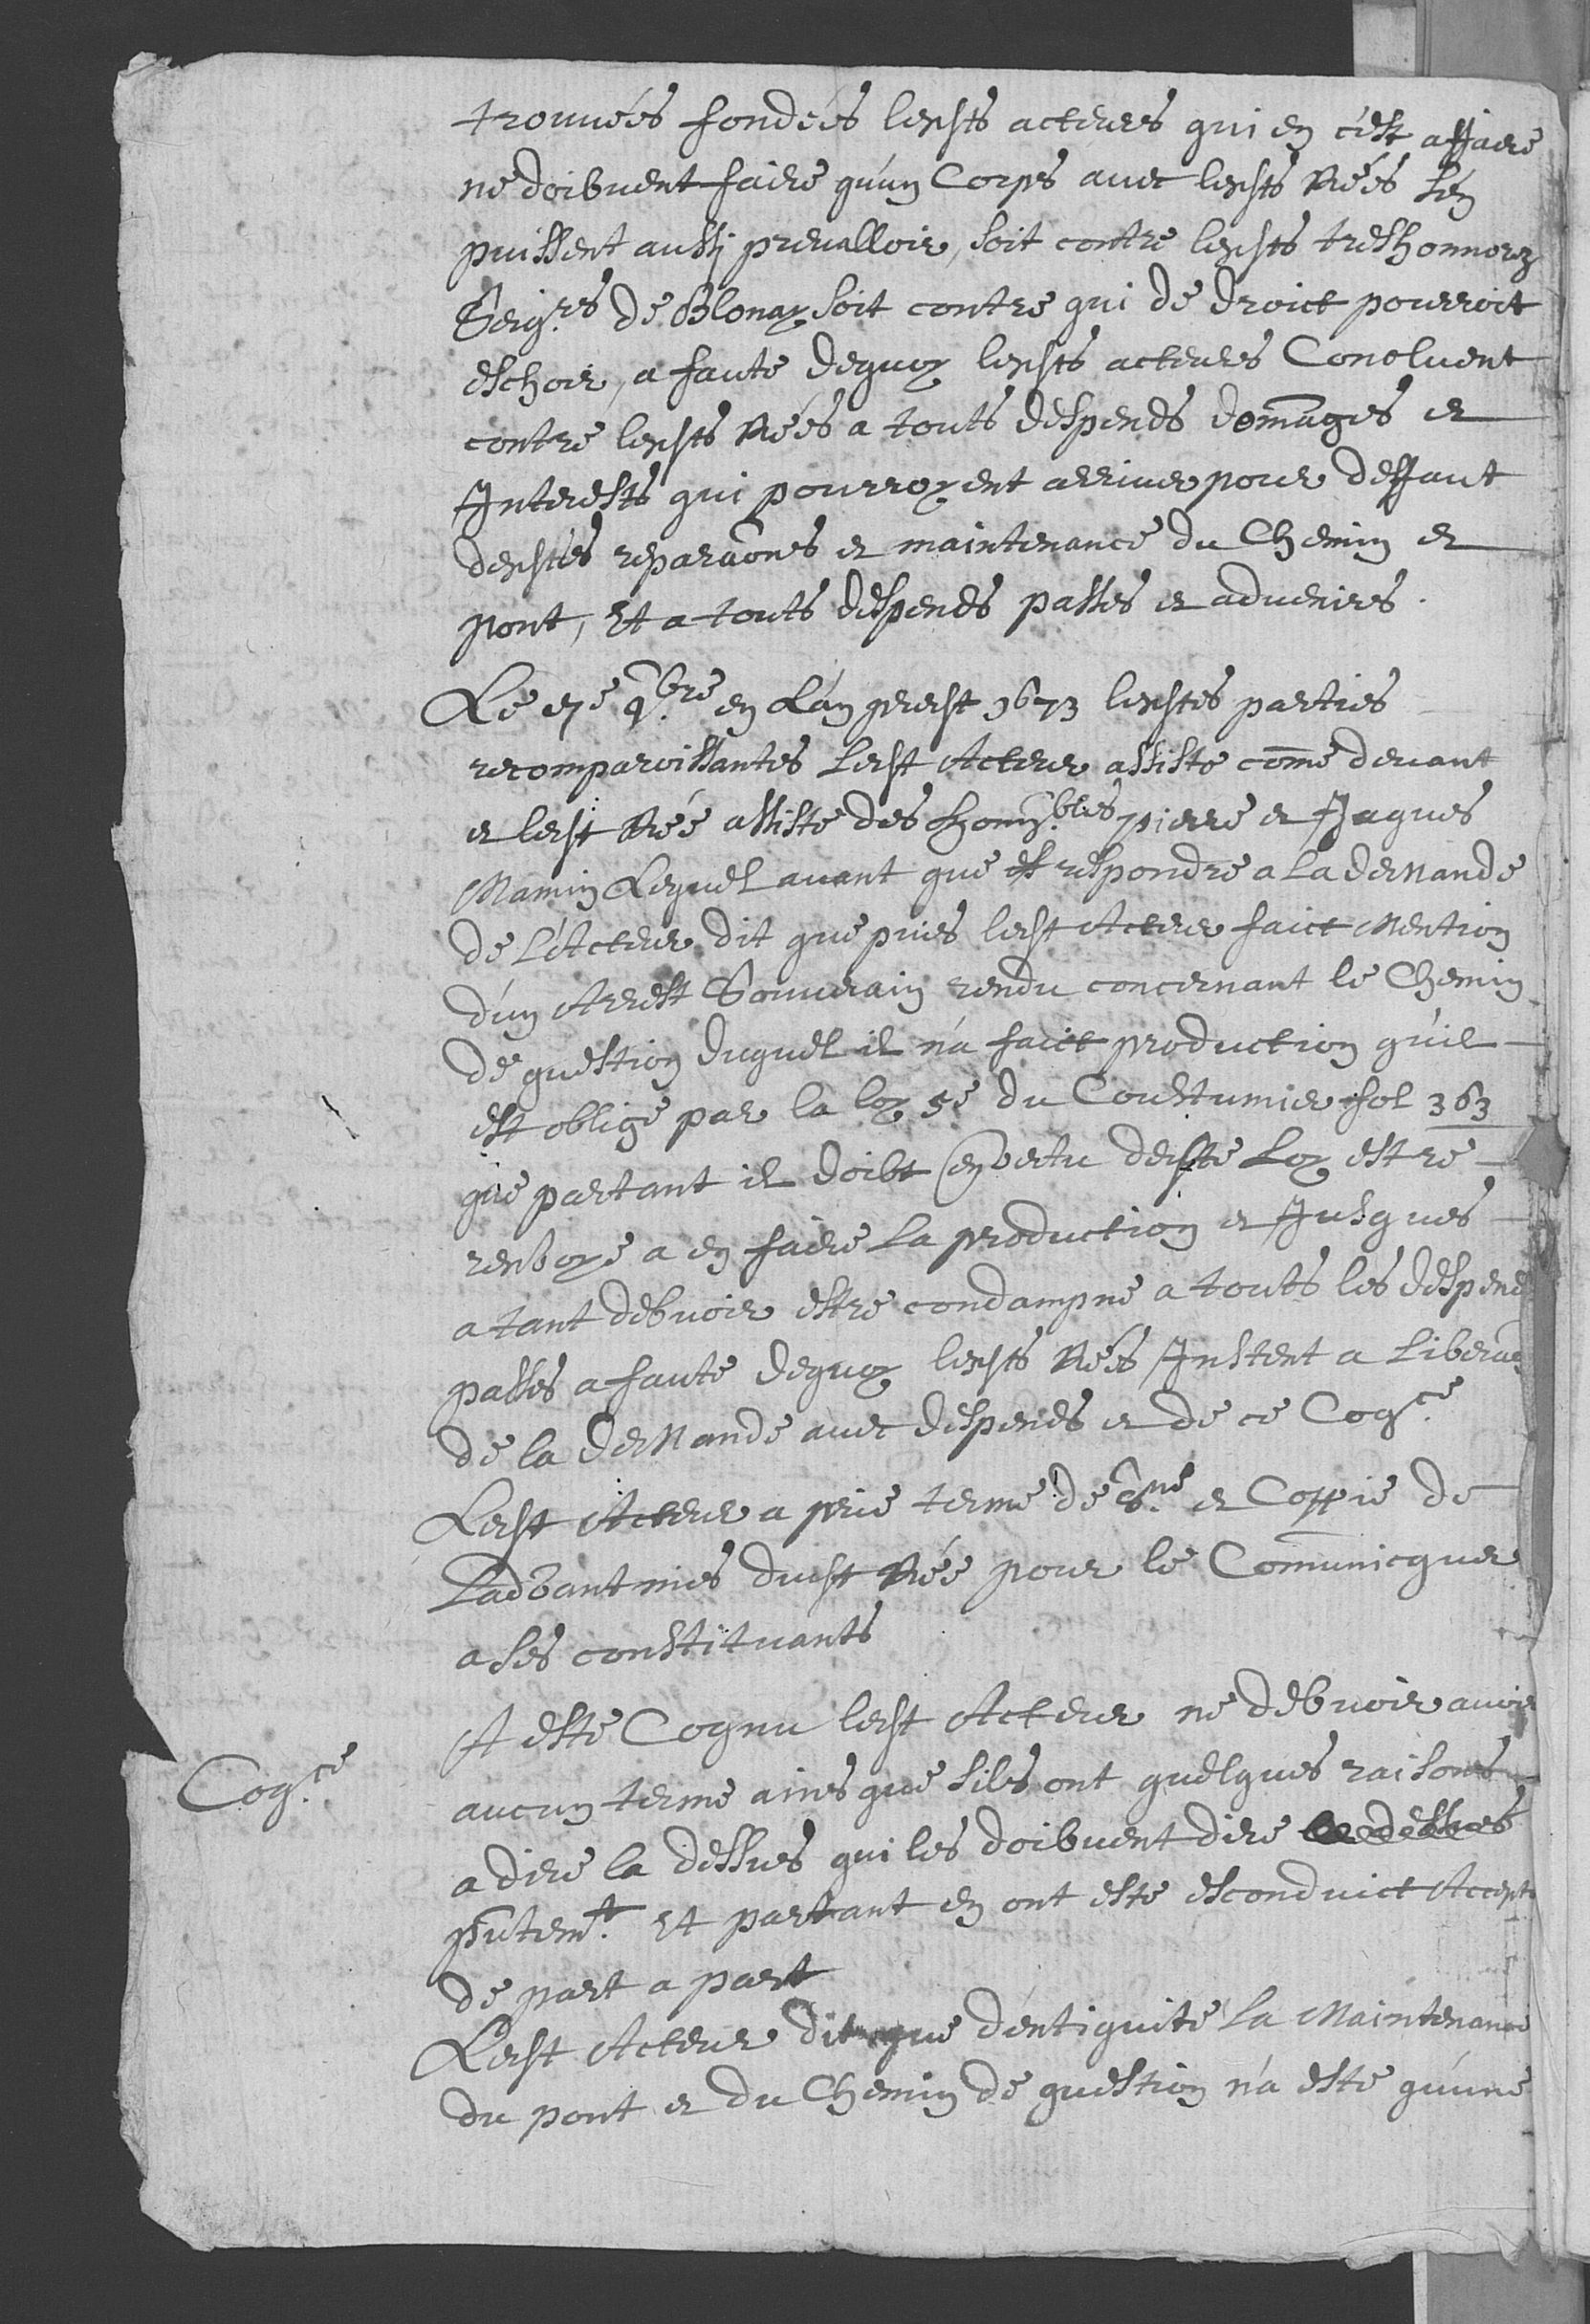 trouuées fondées lesdts acteurs qui en c'est affaire
ne doibuent faire qu'un Corps auec lesdts Rées s'en
puissent aussi preualloir, soit contre lesdts treshonnorez
Seigrs de Blonay soit contre qui de droict pourroit
eschoir, a faute dequoy lesdts acteurs Concluent
contre lesdts Rées a touts despends domages et
Interests qui pourroyent arriuer pour deffaut
desdtes reparaõnes et maintenance du Chemin et
pont, Et a touts despends passes et aduenirs.
Le en l'an 1673 lesdtes parties
recomparoissantes ledt Acteur assisté come deuant
et ledt Rée assisté des honnbles pierre et Jaques
Mamin Lequel auant que respondre a la demande
de l'Acteur dit que puis ledt Acteur faict mention
d'un Arrest Souuerain rendu concernant le Chemin
de question duquel il n'a faict production qu'il
est oblige par la loy 5e du Coustumier fol 363
que partant il doibt en vertu dedte Loy estre
renvoyé a en faire la production et Jusques
a tant debuoir estre condampné a touts les despends
passes a faute dequoy lesdts Rées Instent a
de la demande auec despends et de ce Cogce
Ledt Acteur a prie terme de et Coppie de
Ladvant mis dudt Rée pour le Comunicquer
a ses constituants
Cogce
A esté Cognu ledt Acteur ne debuoir auoir
aucun terme ains que s'ils ont quelques raisons
a dire la dessus qui les doibuent dire
pñtemt. Et partant en ont esté esconduict Accepté
de part a part
Ledt Acteur dit que d'entiquité la Maintenance
du pont et du Chemin de question n'a esté qu'une